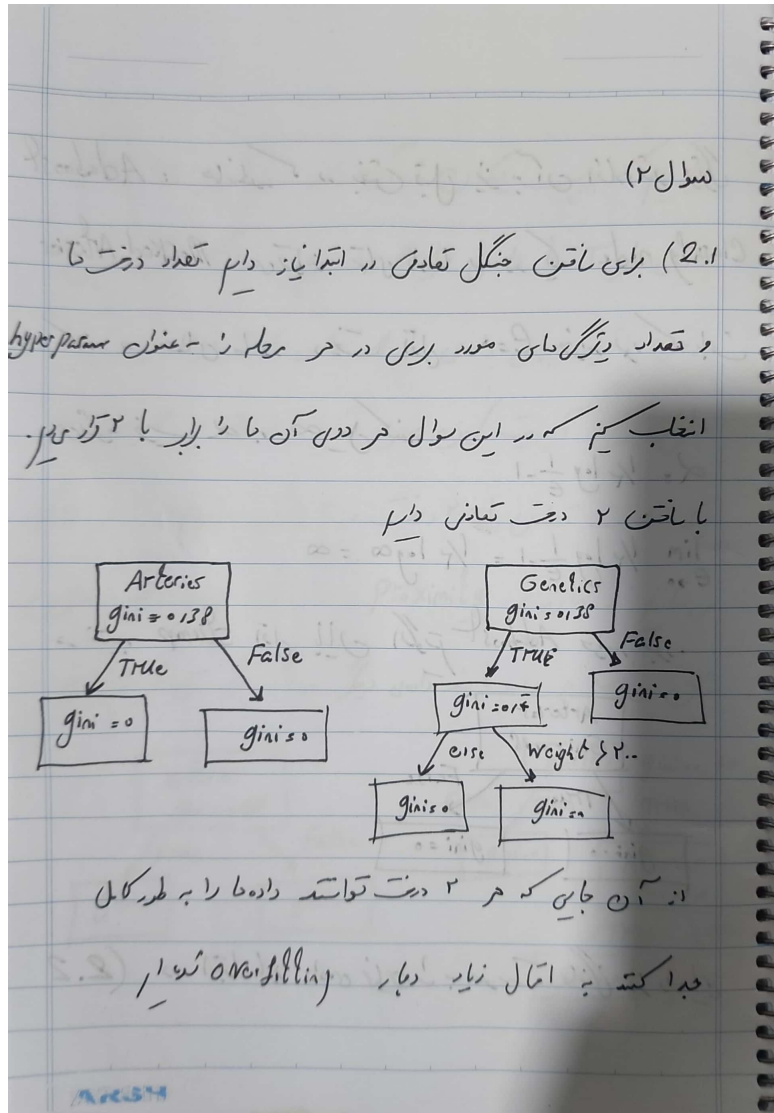 سوال ۲)
2.1) برای ساختن جنگل تصادفی در ابتدا نیاز داریم تعداد درخت ها
و تعداد ویژگی های مورد بررسی در هر مرحله را به عنوان hyper param
انتخاب کنیم که در این سوال هر دوی آن ها را برابر با ۲ قرار می دیم.
با ساختن ۲ درخت تصادفی داریم
Arteries
gini = 0,38
True
False
gini = 0
gini = 0
Genetics
gini = 0,38
TRUE
False
gini =
gini = 0
else
Weight > 200
gini = 0
gini = 0
از آن جایی که هر ۲ درخت توانستند داده ها را به طور کامل
جدا کنند به احتمال زیاد دچار overfitting شده ایم